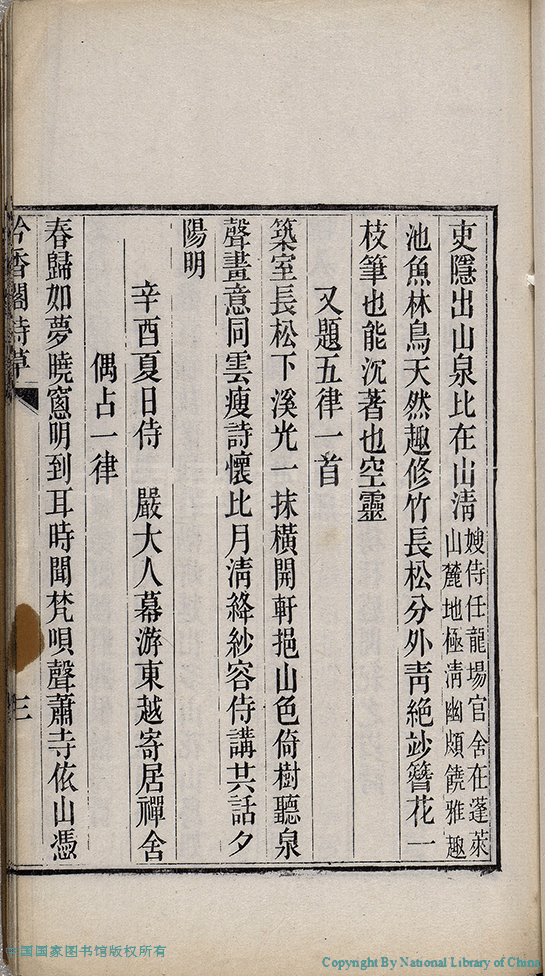 吏隱出山泉比在山淸嫂侍任龍場官舍在蓬萊
山麓地極淸幽頗饒雅趣
池魚林鳥天然趣修竹長松分外靑絶妙簪花一
枝筆也能沉著也空靈
又題五律一首
築室長松下溪光一抹橫開軒挹山色倚樹聽泉
聲畫意同雲瘦詩懷比月淸絳紗容侍講共話夕
陽明
辛酉夏日侍 嚴大人幕游東越寄居禪舍
偶占一律
春歸如夢曉窻明到耳時聞梵唄聲蕭寺依山憑
吟香閣詩草
三
中国国家图书馆版权所有
Copyright By National Library of China